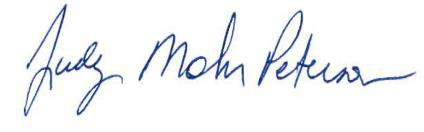 Judy Mohr Peterson